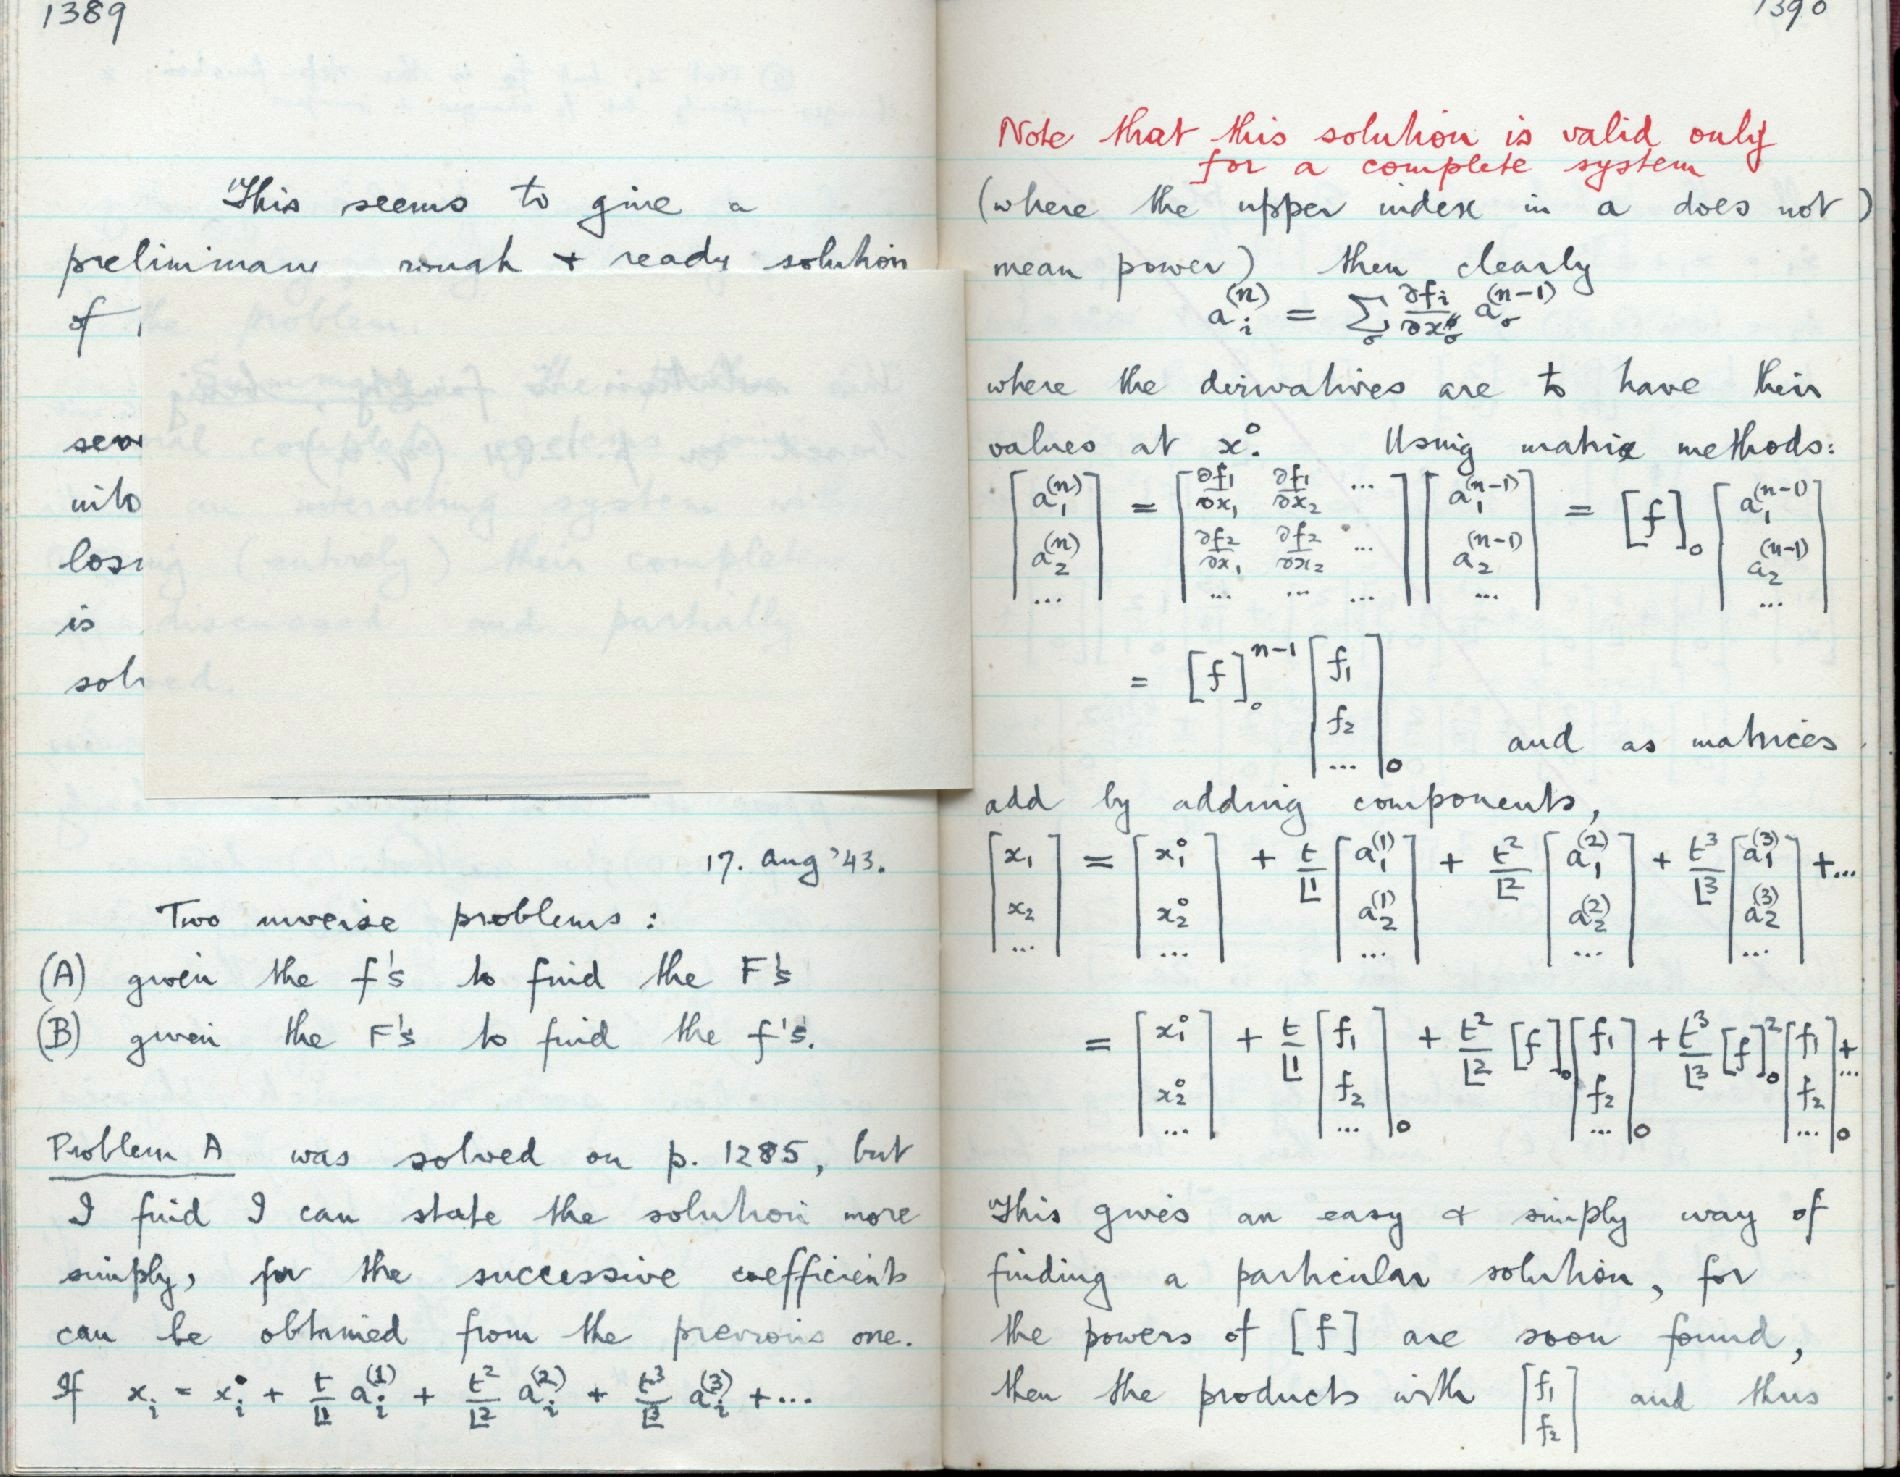 1389
This seems to give a
preliminary, rough & ready solution
of the problem.
Summary
several complete systems
into an interacting system
losing (entirely) their complete
is discussed and partially
solved.
17. Aug '43.
Two inverse problems:
(A) given the f's to find the F's
(B) given the F's to find the f's.
Problem A was solved on p. 1285, but
I find I can state the solution more
simply, for the successive coefficients
can be obtained from the previous one.
If x_i = x_i^0 + t/⌊1 a_i^(1) + t^2/⌊2 a_i^(2) + t^3/⌊3 a_i^(3) + ...
1390
Note that this solution is valid only
for a complete system
(where the upper index in a does not)
mean power) then clearly
a_i^(n) = Σ_σ ∂f_i/∂x_σ^0 a_σ^(n-1)
where the derivatives are to have their
values at x^0. Using matrix methods:
[a_1^(n) a_2^(n) ...] = [∂f_1/∂x_1 ∂f_1/∂x_2 ... ∂f_2/∂x_1 ∂f_2/∂x_2 ... ... ... ...] [a_1^(n-1) a_2^(n-1) ...] = [f]_0 [a_1^(n-1) a_2^(n-1) ...]
= [f]_0^n-1 [f_1 f_2 ...]_0 and as matrices
add by adding components,
[x_1 x_2 ...] = [x_1^0 x_2^0 ...] + t/⌊1 [a_1^(1) a_2^(1) ...] + t^2/⌊2 [a_1^(2) a_2^(2) ...] + t^3/⌊3 [a_1^(3) a_2^(3) ...] + ...
= [x_1^0 x_2^0 ...] + t/⌊1 [f_1 f_2 ...]_0 + t^2/⌊2 [f]_0 [f_1 f_2 ...]_0 + t^3/⌊3 [f]_0^2 [f_1 f_2 ...]_0 + ...
This gives an easy & simply way of
finding a particular solution, for
the powers of [f] are soon found,
then the products with [f_1 f_2] and thus